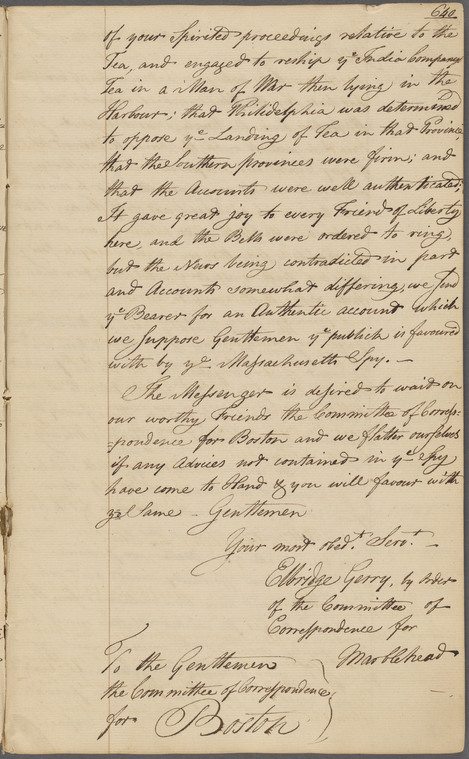 640
of your Spirited proceedings relative to the
Tea, and engaged to reship yᵉ India Company
Tea in a Man of War then lying in the
Harbour; that Philidelphia was determined
to oppose yᵉ Landing of Tea in that Province
that the Southern provinces were firm; and
that the Accounts were well authenticated;
It gave great joy to every Friend of Liberty
here, and the Bells were ordered to ring,
but the News being contradicted in part
and Accounts somewhat differing, we send
yᵉ Bearer for an Authentic account which
we suppose Gentlemen yᵉ publick is favoured
with by yᵉ Massachusetts Spy. —
The Messenger is desired to wait on
our worthy Friends the Committee of Corres-
-pondence for Boston and we flatter ourselves
if any Advices not contained in yᵉ Spy
have come to Hand & you will favour with
Same - Gentlemen
Your most obedᵗ Servᵗ —
Elbridge Gerry, by order
of the Committee of
Correspondence for
Marblehead
To the Gentlemen
the Committee of Correspondence
for Boston